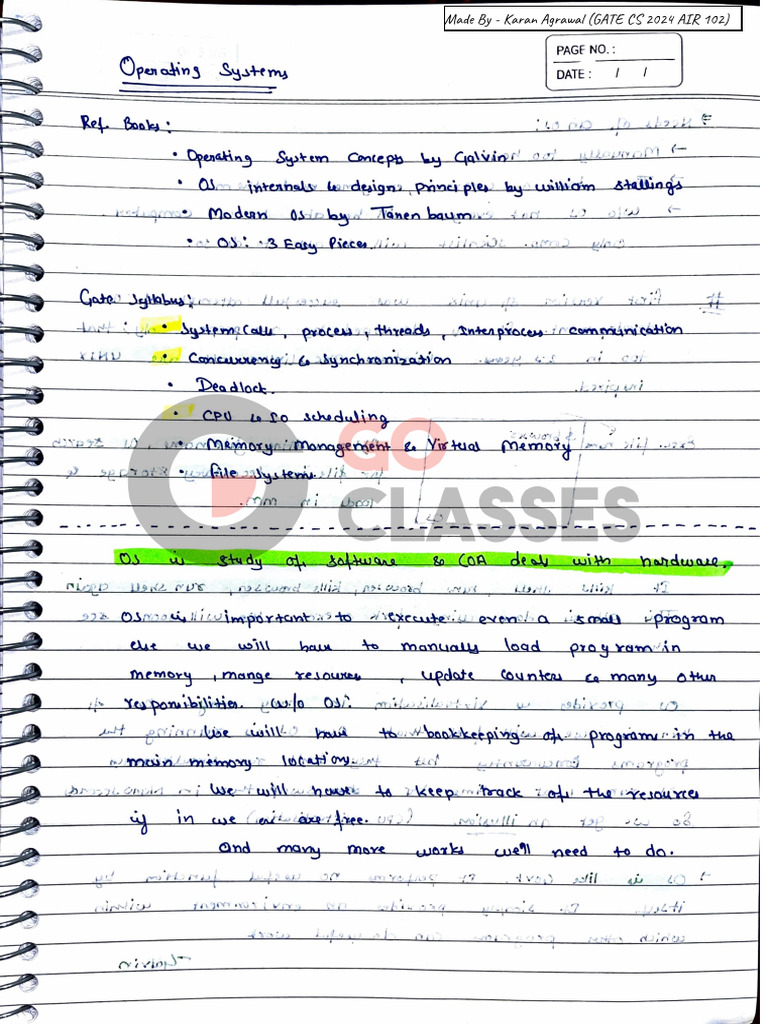 Made By - Karan Agrawal (GATE CS 2024 AIR 102)
PAGE NO. :
DATE : / /
Operating Systems
Ref. Books :
• Operating System Concepts by Galvin
• OS internals & design principles by William Stallings
• Modern OS by Tanenbaum
• OS: 3 Easy Pieces.
Gate Syllabus :
• System Calls, process, threads, Interprocess communication
• Concurrency & Synchronization
• Deadlock.
• CPU & IO scheduling
• Memory Management & Virtual Memory
• File Systems.
GO
CLASSES
OS is study of software & COA deals with hardware.
OS is important to execute even a small program
else we will have to manually load program in
memory, mange resources, update counters & many other
responsibilities. w/o OS:
We will have to bookkeeping of program in the
main memory location.
We will have to keep track of the resources
if in use or are free.
And many more works we'll need to do.